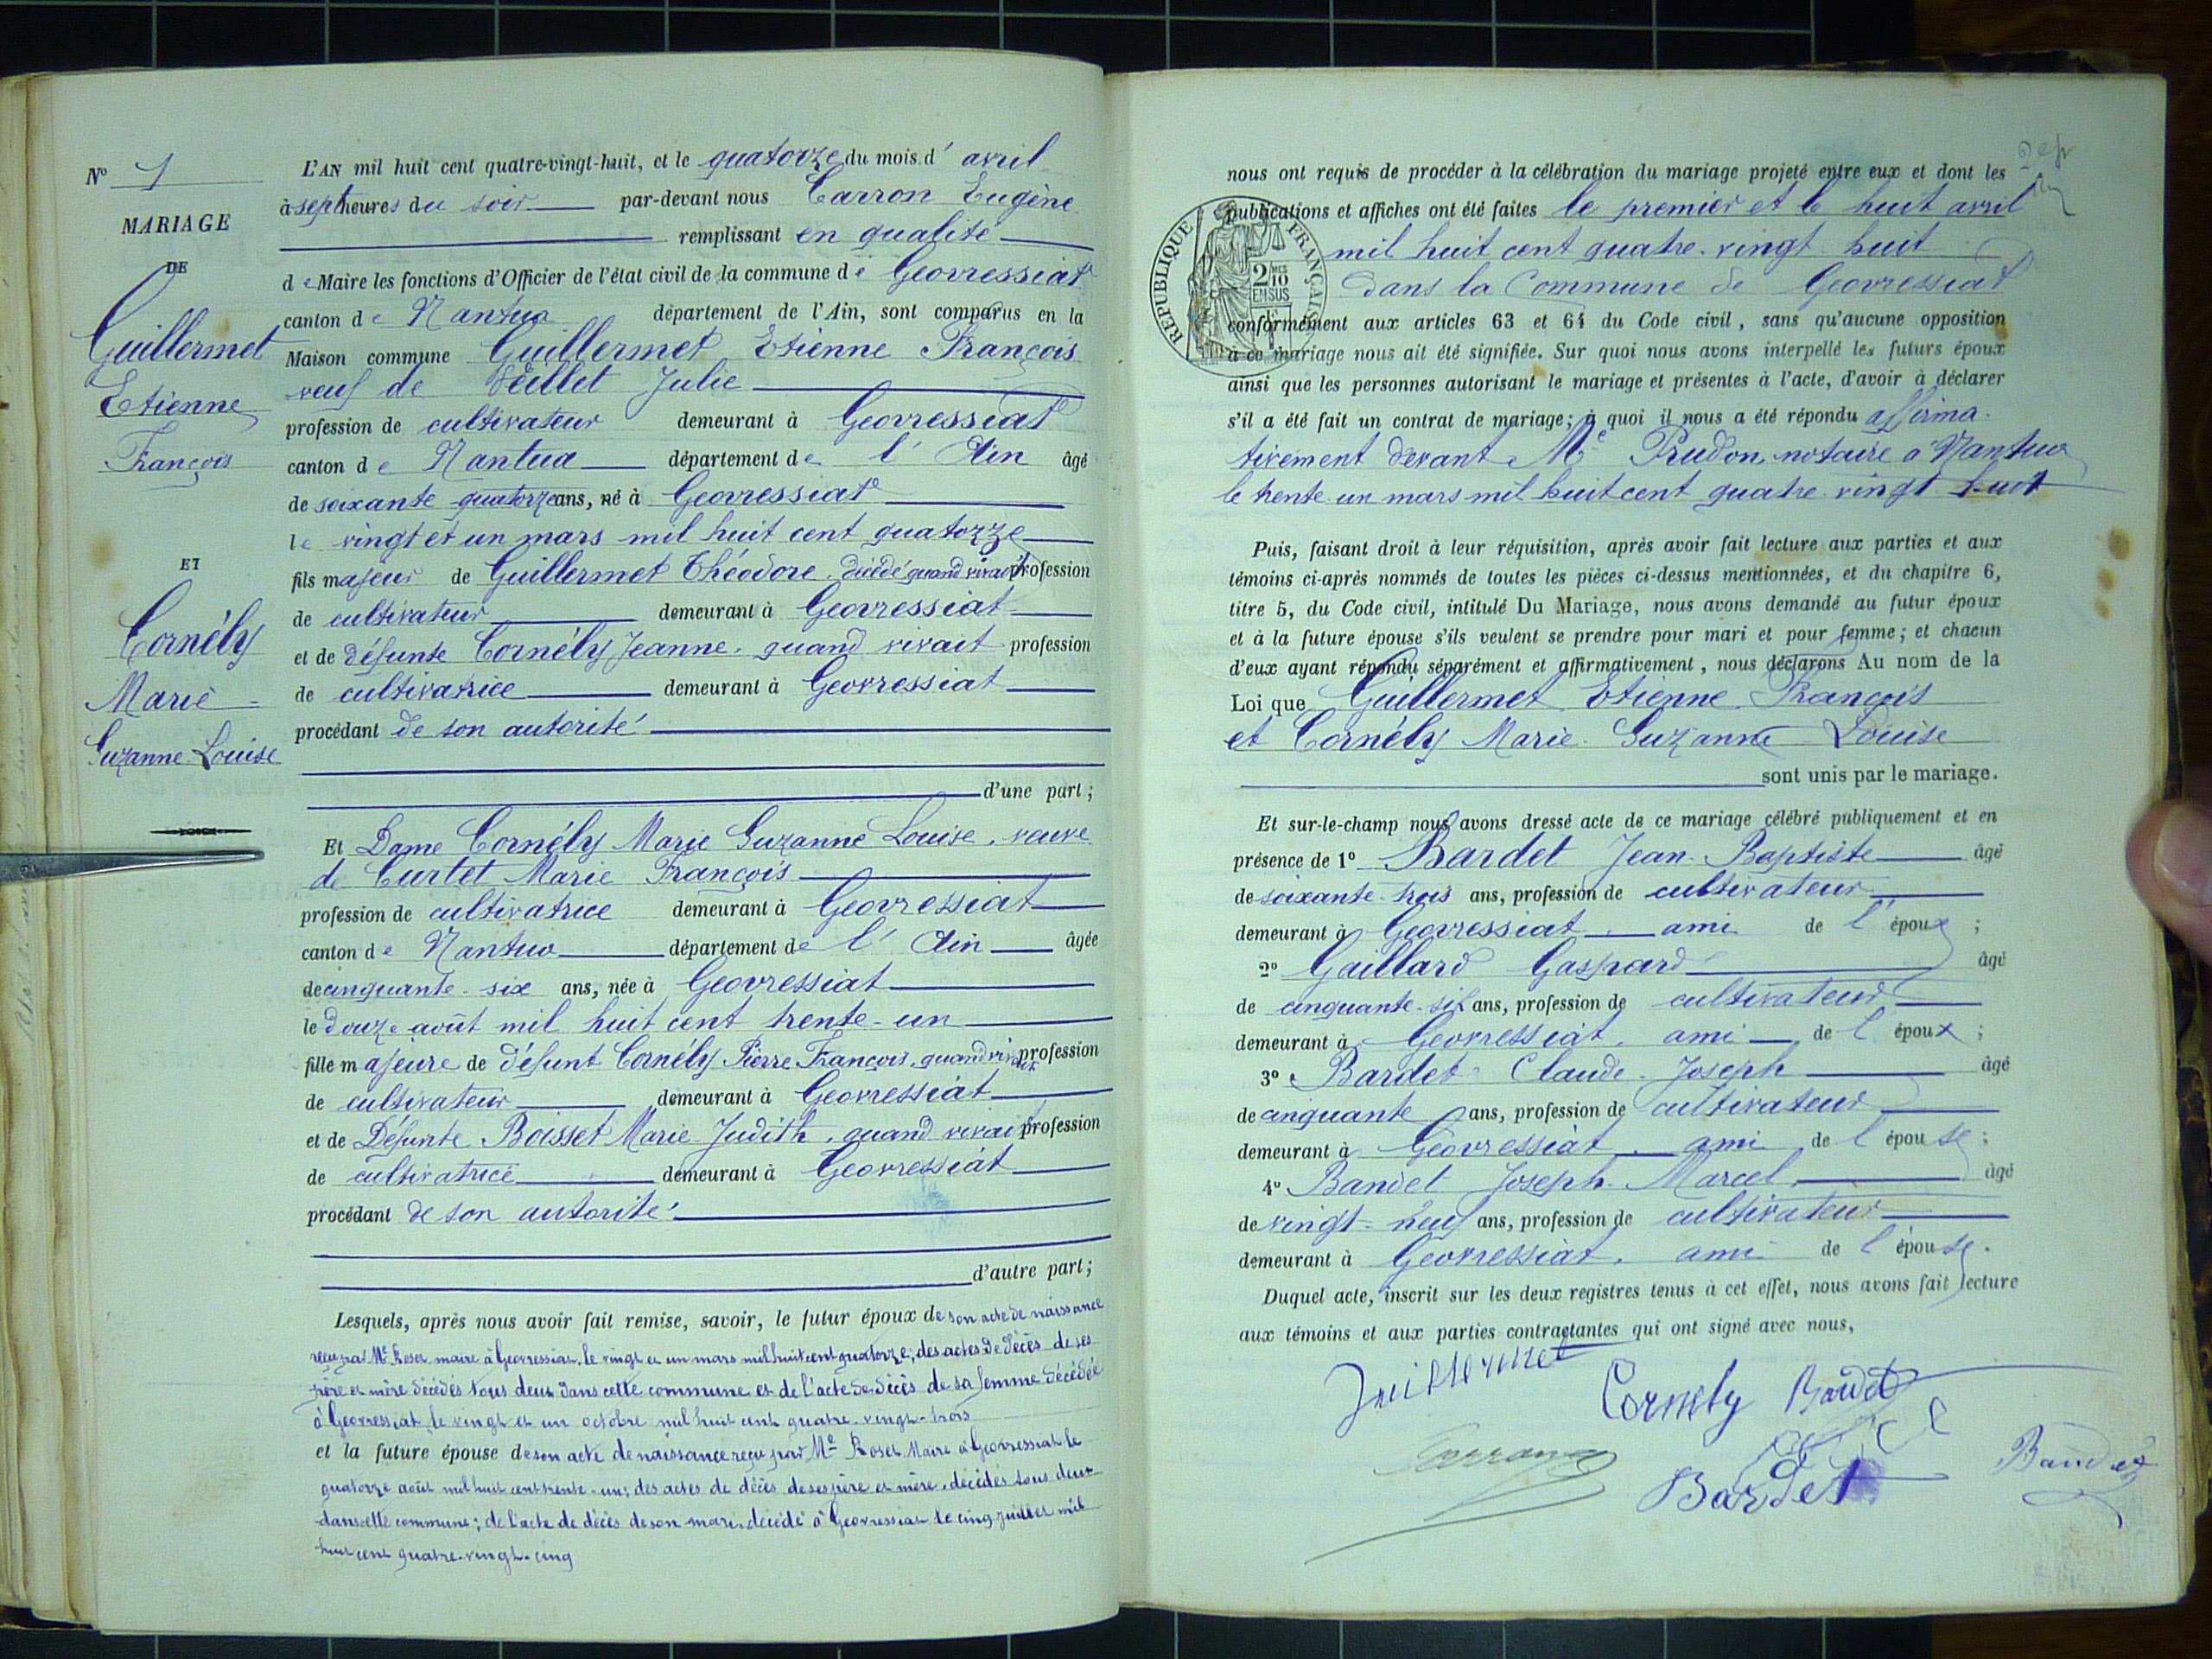 N° 1
MARIAGE
DE
Guillermet
Etienne
François
ET
Cornély
Marie
Suzanne Louise
L'AN mil huit cent quatre-vingt-huit, et le quatorze du mois d'avril
à sept heures du soir par-devant nous Carron Eugène
remplissant en qualité
de Maire les fonctions d'Officier de l'état civil de la commune de Geovressiat
canton de Nantua département de l'Ain, sont comparus en la
Maison commune Guillermet Etienne François
veuf de Veillet Julie
profession de cultivateur demeurant à Geovressiat
canton de Nantua département de l'Ain âgé
de soixante quatorze ans, né à Geovressiat
le vingt et un mars mil huit cent quatorze
fils majeur de Guillermet Théodore, décédé quand vivait profession
de cultivateur demeurant à Geovressiat
et de défunte Cornély Jeanne, quand vivait profession
de cultivatrice demeurant à Geovressiat
procédant de son autorité
d'une part;
Et Dame Cornély Marie Suzanne Louise, veuve
de Curtet Marie François
profession de cultivatrice demeurant à Geovressiat
canton de Nantua département de l'Ain âgée
de cinquante-six ans, née à Geovressiat
le douze août mil huit cent trente-un
fille majeure de défunt Cornély Pierre François, quand vivait profession
de cultivateur demeurant à Geovressiat
et de Défunte Boisset Marie Judith, quand vivait profession
de cultivatrice demeurant à Geovressiat
procédant de son autorité
d'autre part;
Lesquels, après nous avoir fait remise, savoir, le futur époux de son acte de naissance
reçu par Me Roset maire à Geovressiat le vingt et un mars mil huit cent quatorze; des actes de décès de ses
père et mère décédés tous deux dans cette commune et de l'acte de décès de sa femme décédée
à Geovressiat le vingt et un octobre mil huit cent quatre-vingt-trois
et la future épouse de son acte de naissance reçu par Me Roset Maire à Geovressiat le
quatorze août mil huit cent trente-un; des actes de décès de ses père et mère, décédés tous deux
dans cette commune; de l'acte de décès de son mari, décédé à Geovressiat le cinq juillet mil
huit cent quatre-vingt-cinq
nous ont requis de procéder à la célébration du mariage projeté entre eux et dont les
publications et affiches ont été faites le premier et le huit avril
mil huit cent quatre-vingt huit
dans la Commune de Geovressiat
RÉPUBLIQUE FRANÇAISE
2/10 EN SUS
conformément aux articles 63 et 64 du Code civil, sans qu'aucune opposition
à ce mariage nous ait été signifiée. Sur quoi nous avons interpellé les futurs époux
ainsi que les personnes autorisant le mariage et présentes à l'acte, d'avoir à déclarer
s'il a été fait un contrat de mariage; à quoi il nous a été répondu affirma-
tivement devant Me Prudon, notaire à Nantua
le trente un mars mil huit cent quatre-vingt huit
Puis, faisant droit à leur réquisition, après avoir fait lecture aux parties et aux
témoins ci-après nommés de toutes les pièces ci-dessus mentionnées, et du chapitre 6,
titre 5, du Code civil, intitulé Du Mariage, nous avons demandé au futur époux
et à la future épouse s'ils veulent se prendre pour mari et pour femme; et chacun
d'eux ayant répondu séparément et affirmativement, nous déclarons Au nom de la
Loi que Guillermet Etienne François
et Cornély Marie Suzanne Louise
sont unis par le mariage.
Et sur-le-champ nous avons dressé acte de ce mariage célébré publiquement et en
présence de 1° Bardet Jean-Baptiste âgé
de soixante-trois ans, profession de cultivateur
demeurant à Geovressiat ami de l'époux;
2° Gaillard Gaspard âgé
de cinquante-six ans, profession de cultivateur
demeurant à Geovressiat, ami de l'époux;
3° Bardet Claude Joseph âgé
de cinquante ans, profession de cultivateur
demeurant à Geovressiat, ami de l'épouse;
4° Bandet Joseph Marcel âgé
de vingt-neuf ans, profession de cultivateur
demeurant à Geovressiat, ami de l'épouse.
Duquel acte, inscrit sur les deux registres tenus à cet effet, nous avons fait lecture
aux témoins et aux parties contractantes qui ont signé avec nous,
Guillermet
Cornely Bardet
Carron
Bardet
Bandet